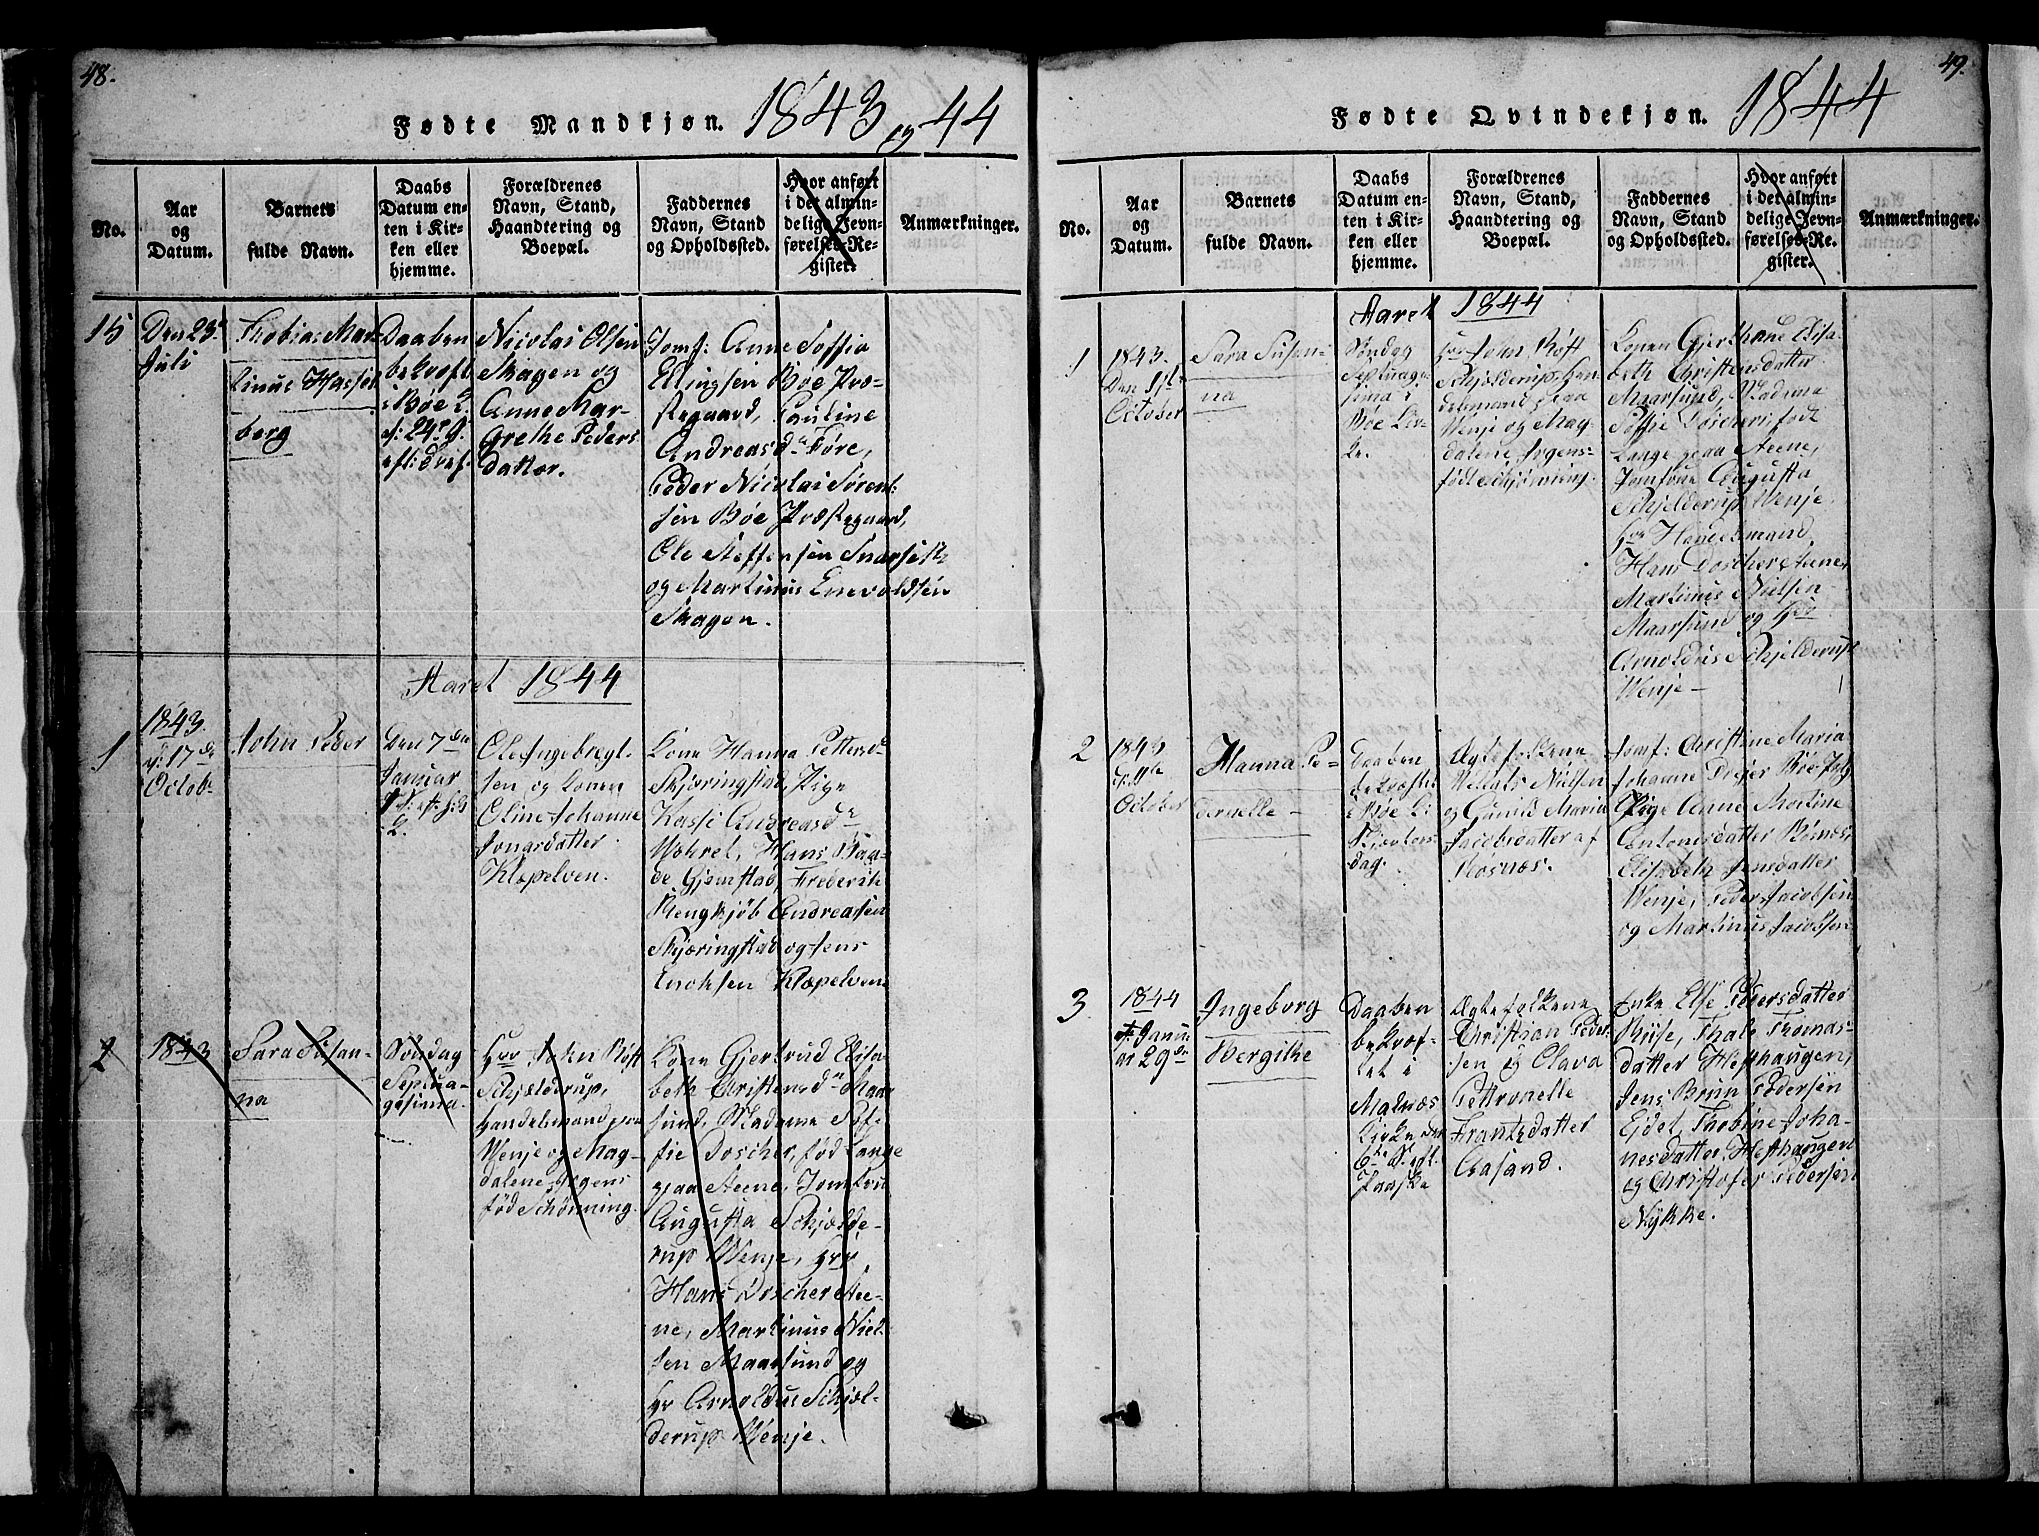 48.
Fødte Mandkjøn. 1843 og 44
No.
Aar
og
Datum.
Barnets
fulde Navn.
Daabs
Datum en-
ten i Kir-
ken eller
hjemme.
Forældrenes
Navn, Stand,
Haandtering og
Boepæl.
Faddernes
Navn, Stand
og Opholdssted.
Hvor anført
i det almin-
delige Jevn-
førelses-Re-
gister.
Anmærkninger.
15
Den 23de
Juli
Tobias Mar-
tinus Hassel
berg
Daaben
bekræft.
i Bøe
Nicolai Olsen
Skagen og
Anne Mar-
grethe Peders
datter.
Jomf: Anne Soffia
Ellingsen Bøe Præ-
stegaard, Pauline
Andreasd. Føre,
Peder Nicolai Sørent-
sen Bøe Præstegaard,
Ole Steffensen Snarset
og Martinus Enevoldsen
Skagen.
Aaret 1844
1
1843.
d: 17de
Octobr
John Peder
Den 7de
Januar
Ole Ingebregt-
sen og Konen
Oline Johanne
Jonasdatter
Klæpelven.
Kone Hanna Pettersd
Skjæringstad, Pige
Kassi Andreasd
Hans Baa-
de Gjemstad, Frederik
Rengkjøb Andreassen
Skjæringstad og Jens
Enoksen Klæpelven
2
1843
Sara Susan-
na
Søndag
Septua-
gesima
Hrr John Røst
Schjelderup,
Handelsmand paa
Wenje og Mag-
dalene Irgens
fød Schønning.
Kone Gjertrud Elisa
beth Christensd Maar
sund, Madame Sof-
fie Doscher, fød Lange
paa Steene, Jomfru
Augusta Schjelde-
rup Wenje, Hrr
Hans Doscher Stee-
ne, Martinus Niel-
sen Maarsund og
Hr Arnoldus Schjel-
derup Wenje.
49.
Fødte Qvindekjøn. 1844
No.
Aar
og
Datum.
Barnets
fulde Navn.
Daabs
Datum en-
ten i Kir-
ken eller
hjemme.
Forældrenes
Navn, Stand,
Haandtering og
Boepæl.
Faddernes
Navn, Stand
og Opholdssted.
Hvor anført
i det almin-
delige Jevn-
førelses-Re-
gister.
Anmærkninger.
Aaret 1844
1
1843.
Den
October
Sara Susan-
na
Søndag
Septuage
sima i
Bøe Kir-
ke.
Hrr John Røst
Schjelderup, Han-
delsmand paa
Wenje og Mag-
dalene Irgens
fød Schjønning.
Konen Gjertrud Elisa-
beth Christensdatter
Maarsund, Madame
Soffie Doscher fød
Lange paa Steene,
Jomfrue Augusta
Schjelderup Wenje,
Hrr Handelsmand
Hans Doscher Steene,
Martinus Nielsen
Maarsund og Hrr
Arnoldus Schjelderup
Wenje
2
1843
October
Hanna Pe-
dernelle
Daaben
bekræftet
i Bøe
dag.
Ægtefolkene
Nielsen
og Gunild Maria
Jacobsdatter af
Røsnæs.
Jomf: Christine Maria
Johanne Dreyer Bøe
Pige Anne Martine
Antonisdatter Røsnæs,
Elisabeth Jensdatter
Wenje, Peder Jacobsen
og Martinus Jacobsen
3
1844
Janu
ar 29de
Ingeborg
Bergithe
Daaben
bekræf-
tet i
Malnæs
Kirke den
6te S. eft.
Paaske
Ægtefolkene
Christian Peder-
sen og Olava
Pettronelle
Frantsdatter
Aasand.
Enke Else Pedersdatter
Riise, Thale Thomas-
datter Hesthaugen,
Jens Brun Pedersen
Ejdet, Thobine Joha-
nesdatter Hesthaugen
og Christofer Pedersen
Nykke.